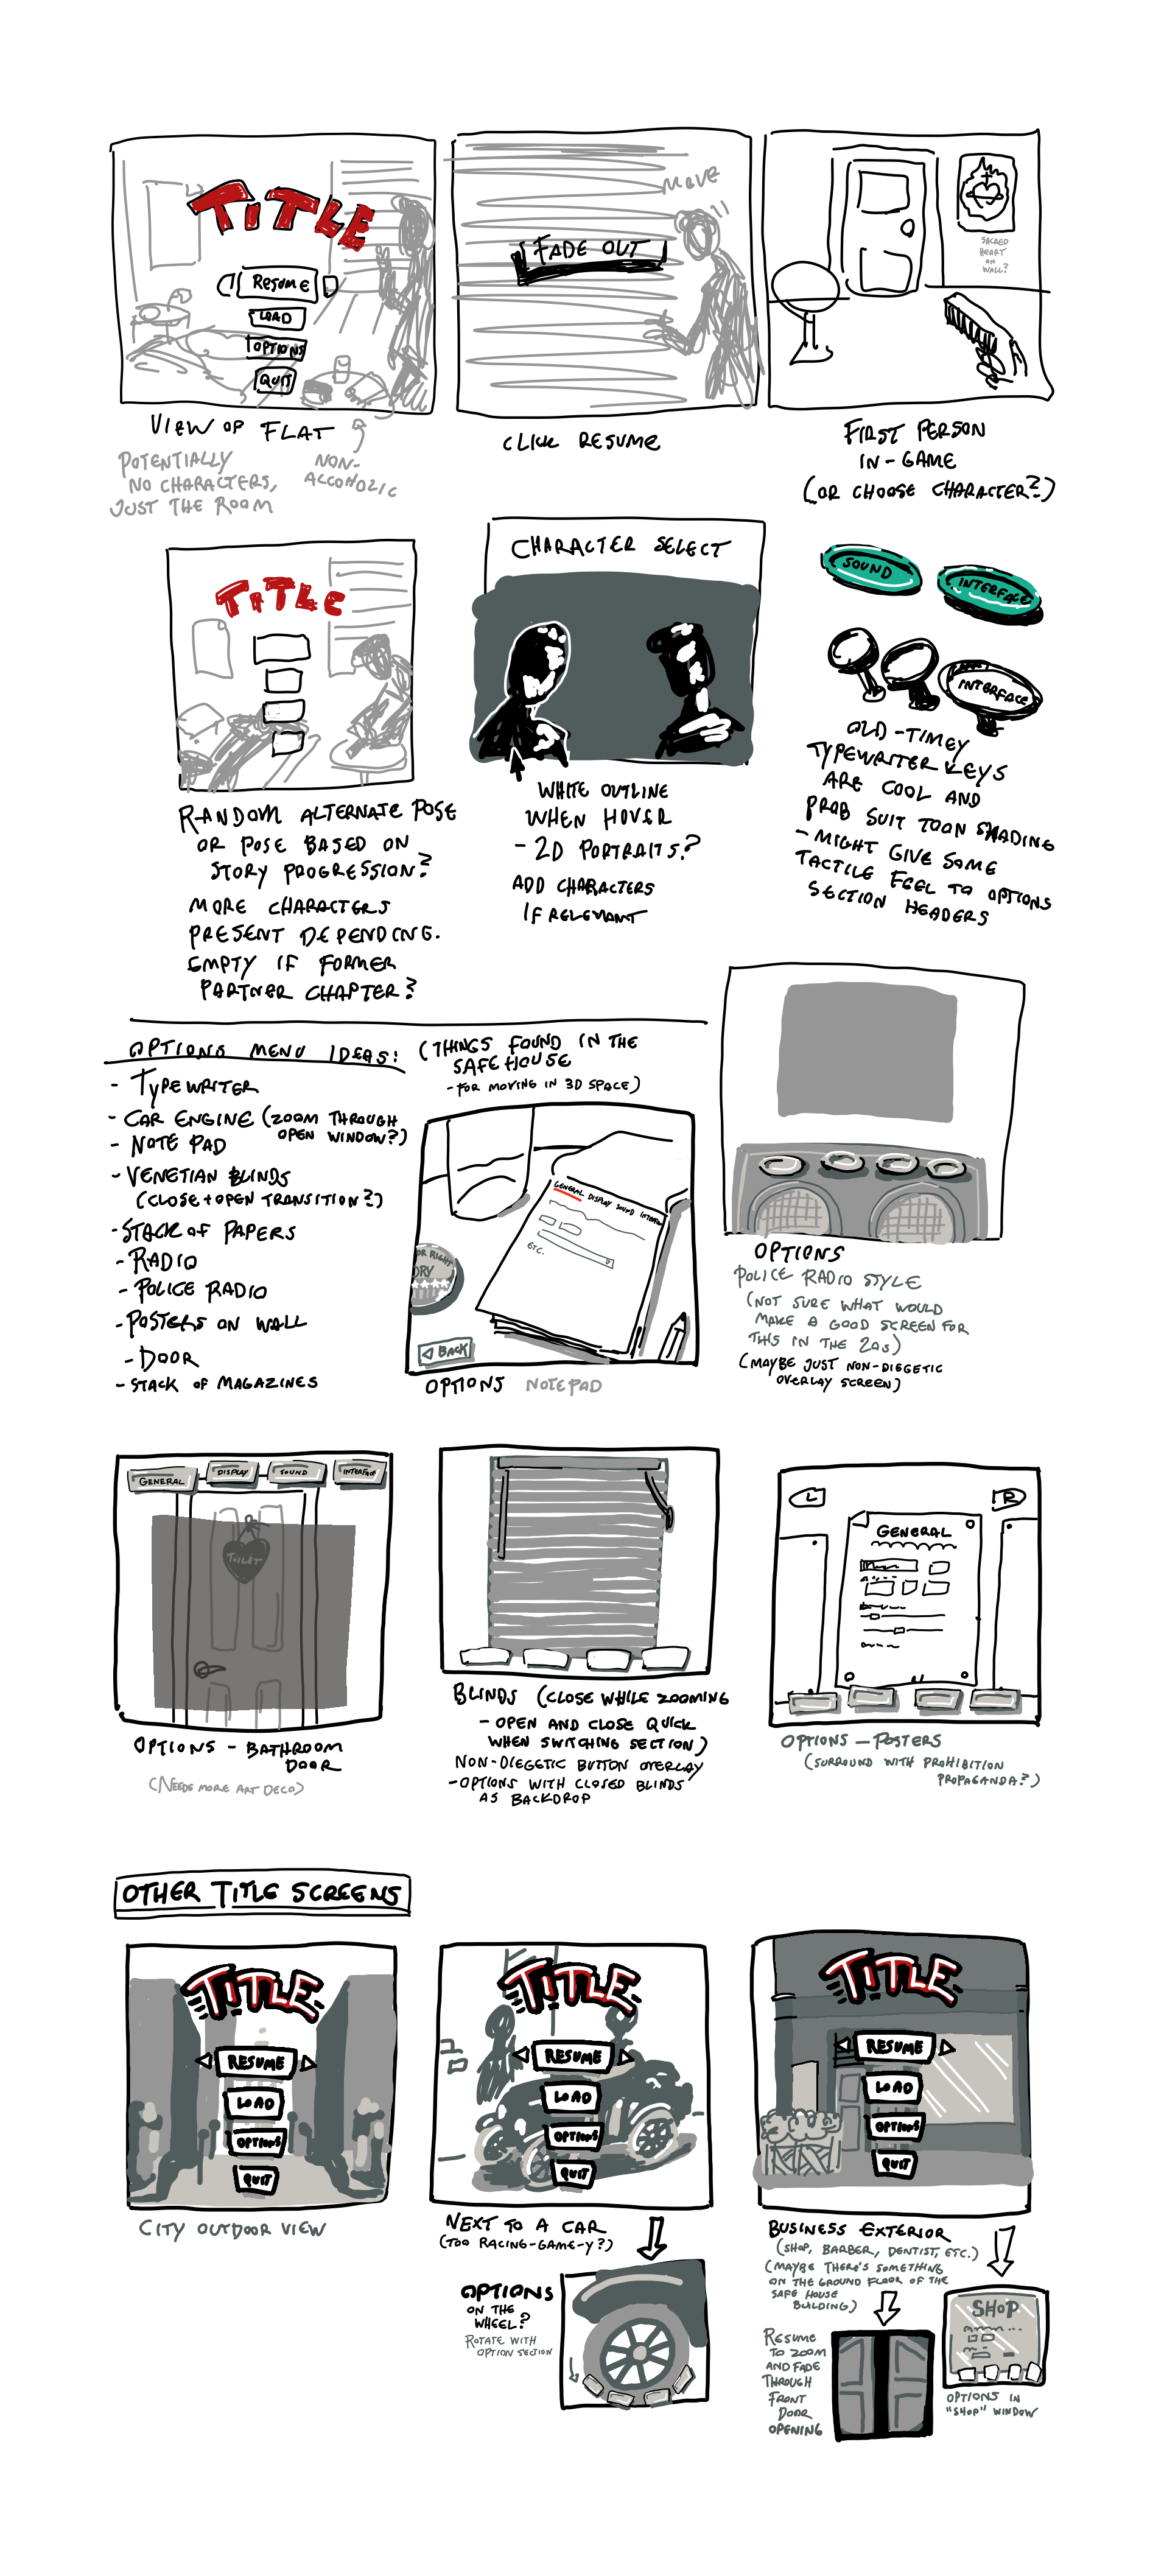 TITLE
RESUME
LOAD
OPTIONS
QUIT
VIEW OF FLAT
POTENTIALLY
NO CHARACTERS,
JUST THE ROOM
NON-
ALCOHOLIC
MOVE
FADE OUT
CLICK RESUME
SACRED
HEART
ON
WALL?
FIRST PERSON
IN-GAME
(OR CHOOSE CHARACTER?)
TITLE
RANDOM ALTERNATE POSE
OR POSE BASED ON
STORY PROGRESSION?
MORE CHARACTERS
PRESENT DEPENDING.
EMPTY IF FORMER
PARTNER CHAPTER?
CHARACTER SELECT
WHITE OUTLINE
WHEN HOVER
- 2D PORTRAITS?
ADD CHARACTERS
IF RELEVANT
SOUND
INTERFACE
INTERFACE
OLD-TIMEY
TYPEWRITER KEYS
ARE COOL AND
PROB SUIT TOON SHADING
- MIGHT GIVE SOME
TACTILE FEEL TO OPTIONS
SECTION HEADERS
OPTIONS MENU IDEAS:
(THINGS FOUND IN THE
SAFEHOUSE
- FOR MOVING IN 3D SPACE)
- TYPEWRITER
- CAR ENGINE (ZOOM THROUGH
OPEN WINDOW?)
- NOTE PAD
- VENETIAN BLINDS
(CLOSE + OPEN TRANSITION?)
- STACK OF PAPERS
- RADIO
- POLICE RADIO
- POSTERS ON WALL
- DOOR
- STACK OF MAGAZINES
GENERAL DISPLAY SOUND INTERFACE
ETC.
OR RIGHT
ORY
BACK
OPTIONS NOTEPAD
OPTIONS
POLICE RADIO STYLE
(NOT SURE WHAT WOULD
MAKE A GOOD SCREEN FOR
THIS IN THE 20s)
(MAYBE JUST NON-DIEGETIC
OVERLAY SCREEN)
GENERAL
DISPLAY
SOUND
INTERFACE
TOILET
OPTIONS - BATHROOM
DOOR
(NEEDS MORE ART DECO)
BLINDS (CLOSE WHILE ZOOMING
- OPEN AND CLOSE QUICK
WHEN SWITCHING SECTION)
NON-DIEGETIC BUTTON OVERLAY
- OPTIONS WITH CLOSED BLINDS
AS BACKDROP
L
R
GENERAL
OPTIONS - POSTERS
(SURROUND WITH PROHIBITION
PROPAGANDA?)
OTHER TITLE SCREENS
TITLE
RESUME
LOAD
OPTIONS
QUIT
CITY OUTDOOR VIEW
TITLE
RESUME
LOAD
OPTIONS
QUIT
NEXT TO A CAR
(TOO RACING-GAME-Y?)
OPTIONS
ON THE
WHEEL?
ROTATE WITH
OPTION SECTION
TITLE
RESUME
LOAD
OPTIONS
QUIT
BUSINESS EXTERIOR
(SHOP, BARBER, DENTIST, ETC.)
(MAYBE THERE'S SOMETHING
ON THE GROUND FLOOR OF THE
SAFE HOUSE
BUILDING)
RESUME
TO ZOOM
AND FADE
THROUGH
FRONT
DOOR
OPENING
SHOP
OPTIONS IN
"SHOP" WINDOW